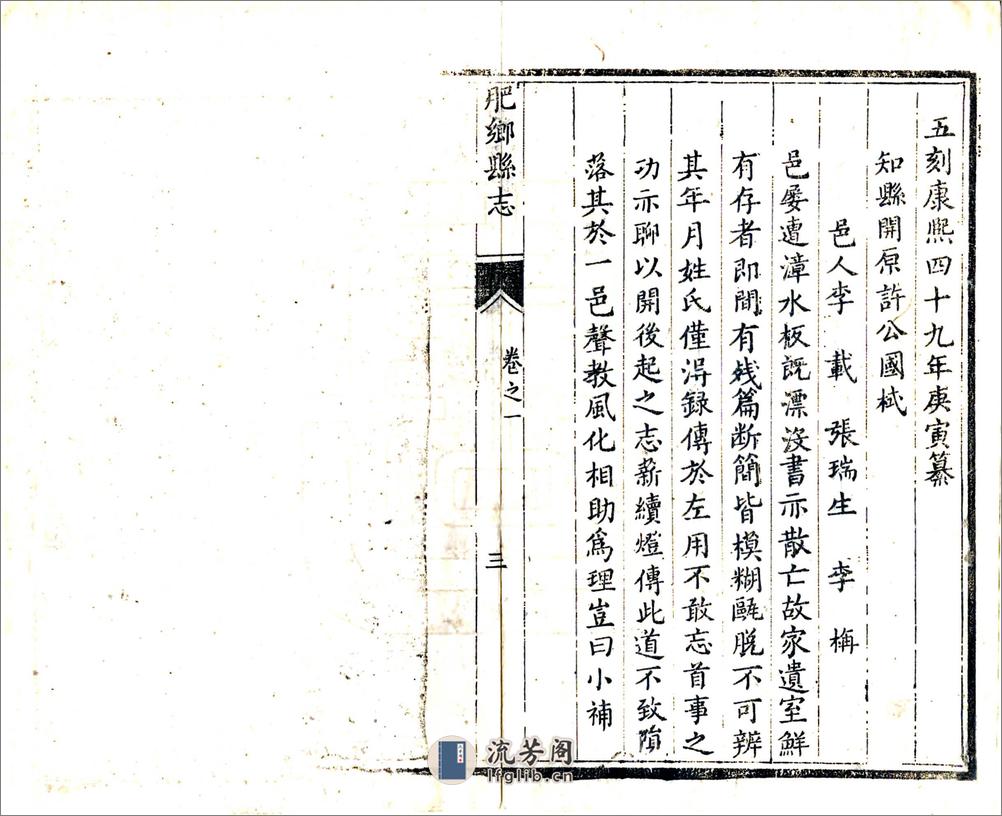 五刻康熙四十九年庚寅纂
知縣開原許公國栻
邑人李 載 張瑞生 李 栴
邑屡遭漳水板既漂没書亦散亡故家遺室鮮
有存者即間有残篇断簡皆模糊脱不可辨
其年月姓氏僅淂録傳於左用不敢忘首事之
功亦聊以開後起之志薪續燈傳此道不致隕
落其於一邑聲教風化相助為理豈曰小補
肥鄉縣志
卷之一
三
流芳阁
lfglib.cn